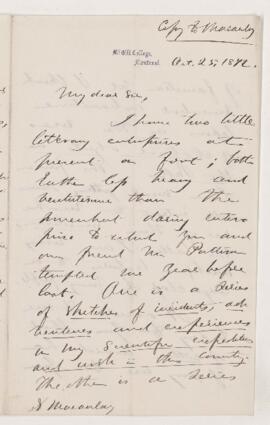 Copy to Macaulay
McGill College,
Montreal.
Oct. 25, 18
My dear Sir,
I have two little
literary enterprises at
present on foot; both
rather less heavy and
venturesome than the
somewhat daring enter
prise to which you and
our friend Mr
tempted me year before
last. One is a series
of sketches of incidents, ad
ventures and experiences
in my scientific expeditions
and work in this country.
The other is a series
Macaulay